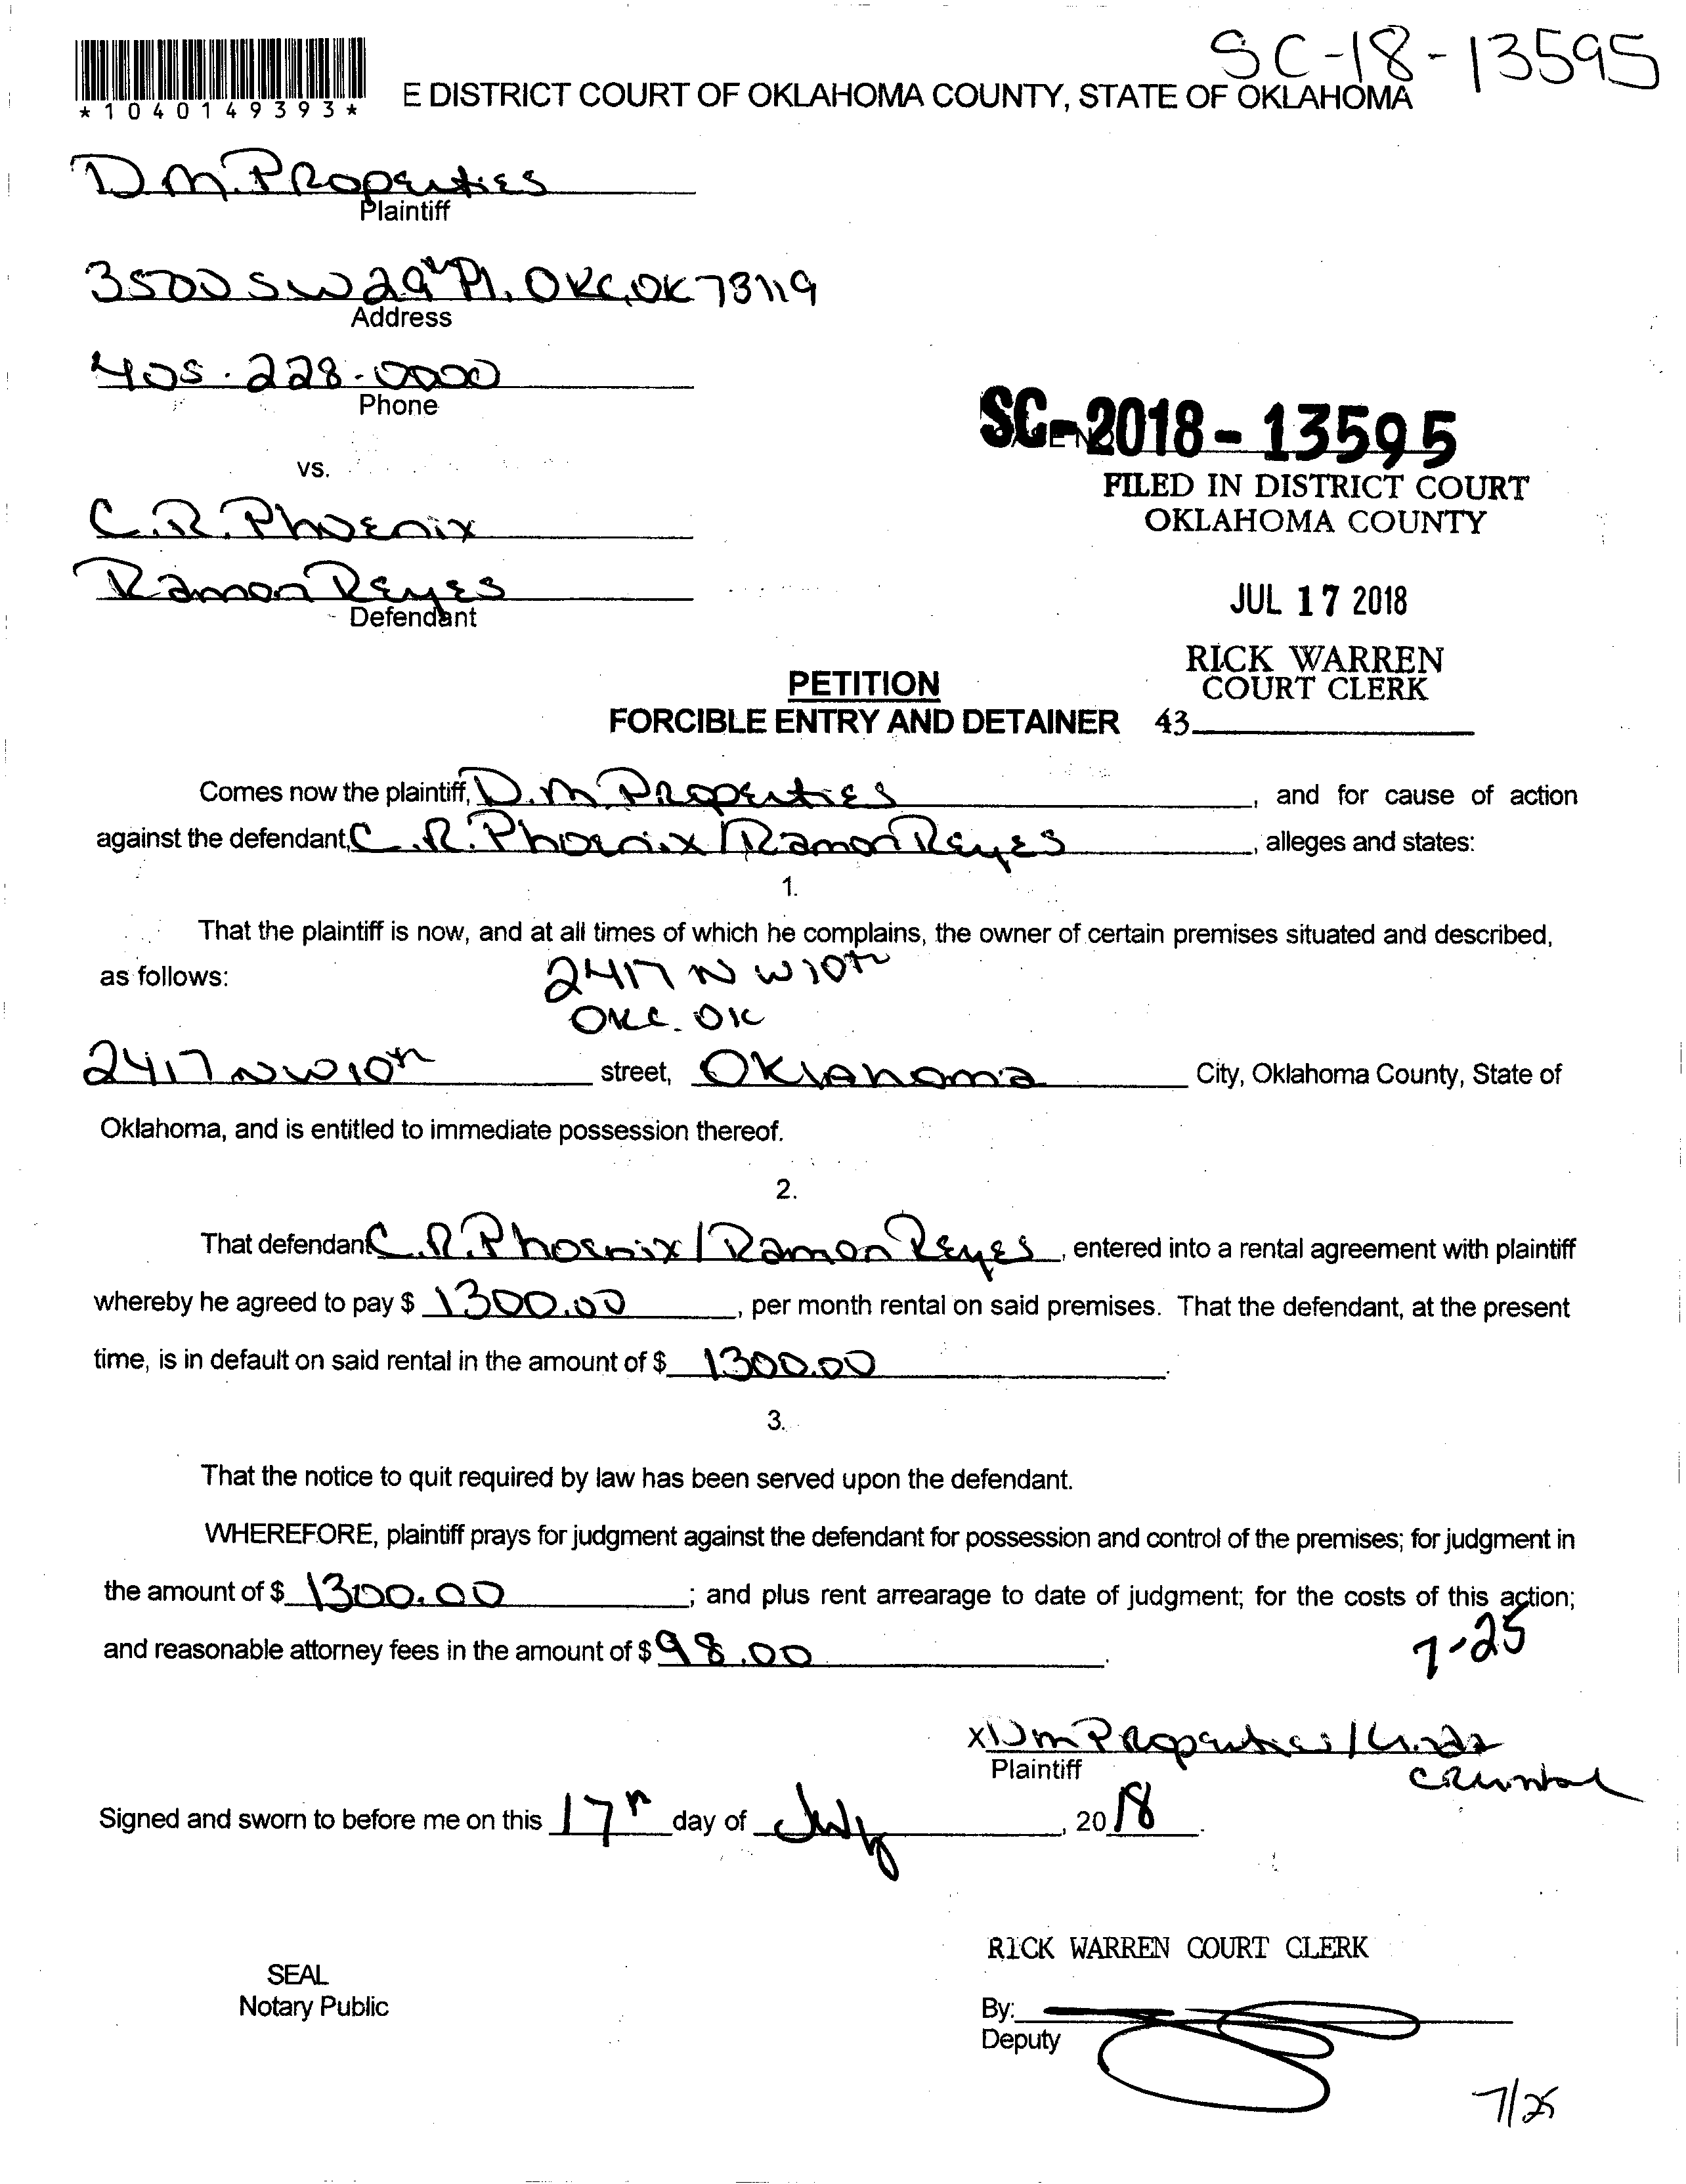 SC-18-13595
*1040149393*
E DISTRICT COURT OF OKLAHOMA COUNTY, STATE OF OKLAHOMA
D.M. Properties
Plaintiff
3500 SW 29th Pl. OKC, OK 73119
Address
405.228.0000
Phone
SC-2018-13595
FILED IN DISTRICT COURT
OKLAHOMA COUNTY
vs.
C.R. Phoenix
Ramon Reyes
Defendant
JUL 17 2018
RICK WARREN
COURT CLERK
43
PETITION
FORCIBLE ENTRY AND DETAINER
Comes now the plaintiff, D.M. Properties, and for cause of action
against the defendant, C.R. Phoenix / Ramon Reyes, alleges and states:
1.
That the plaintiff is now, and at all times of which he complains, the owner of certain premises situated and described,
as follows: 2417 NW 10th
OKC. OK
2417 NW 10th street, Oklahoma City, Oklahoma County, State of
Oklahoma, and is entitled to immediate possession thereof.
2.
That defendant C.R. Phoenix / Ramon Reyes, entered into a rental agreement with plaintiff
whereby he agreed to pay $ 1300.00, per month rental on said premises. That the defendant, at the present
time, is in default on said rental in the amount of $ 1300.00.
3.
That the notice to quit required by law has been served upon the defendant.
WHEREFORE, plaintiff prays for judgment against the defendant for possession and control of the premises; for judgment in
the amount of $ 1300.00; and plus rent arrearage to date of judgment; for the costs of this action;
and reasonable attorney fees in the amount of $ 98.00.
7-25
x DM Properties /
Plaintiff
Signed and sworn to before me on this 17th day of July, 2018.
RICK WARREN COURT CLERK
SEAL
Notary Public
By:
Deputy
7/25